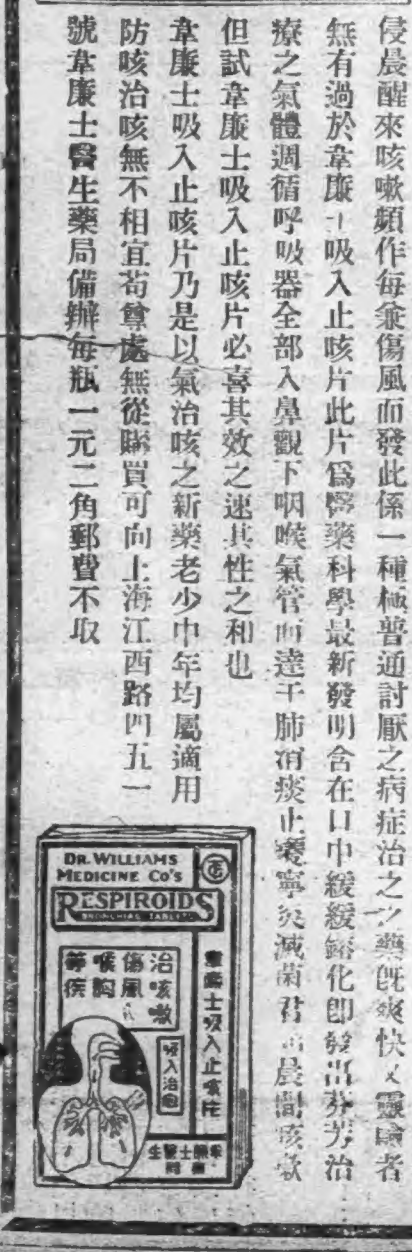 侵晨醒來咳嗽頻作每兼傷風而發此係一種極普通討厭之病症治之之藥旣爽快又靈驗者
無有過於韋廉士吸入止咳片此片爲醫藥科學最新發明含在口中緩緩鎔化卽發出芬芳治
療之氣體週循呼吸器全部入鼻觀下咽喉氣管而達于肺消痰止 寧炎滅菌君 晨間咳嗽
但試韋廉士吸入止咳片必喜其效之速其性之和也
韋廉士吸入止咳片乃是以氣治咳之新藥老少中年均屬適用
防咳治咳無不相宜苟尊處無從購買可向上海江西路四五一
號韋廉士醫生藥局備辦每瓶一元二角郵費不取
DR. WILLIAMS
MEDICINE CO'S
RESPIROIDS
BRONCHIAL TABLETS
韋廉士吸入止咳片
治咳嗽
傷風
喉胸
等疾
吸入治咳